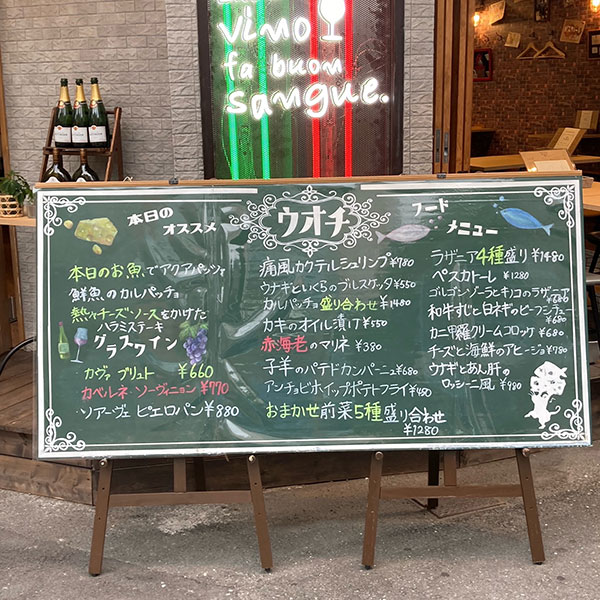 vino
fa buon
sangue.
本日の
オススメ
本日のお魚でアクアパッツァ
鮮魚のカルパッチョ
熱々チーズソースをかけた
ハラミステーキ
グラスワイン
カヴァ ブリュト ¥660
カベルネ・ソーヴィニョン ¥770
ソアーヴェ ピエロパン ¥880
ウオチ
痛風カクテルシュリンプ ¥780
ウナギといくらのブルスケッタ ¥550
カルパッチョ盛り合わせ ¥1480
カキのオイル漬け ¥550
赤海老のマリネ ¥380
子羊のパテドカンパーニュ ¥680
アンチョビホイップポテトフライ ¥450
おまかせ前菜5種盛り合わせ
¥1280
フード
メニュー
ラザニア4種盛り ¥1480
ペスカトーレ ¥1280
ゴルゴンゾーラとキノコのラザニア
¥680
和牛すじと白ネギのビーフシチュー
¥680
カニ甲羅クリームコロッケ ¥680
チーズと海鮮のアヒージョ ¥780
ウナギとあん肝の
ロッシーニ風 ¥980